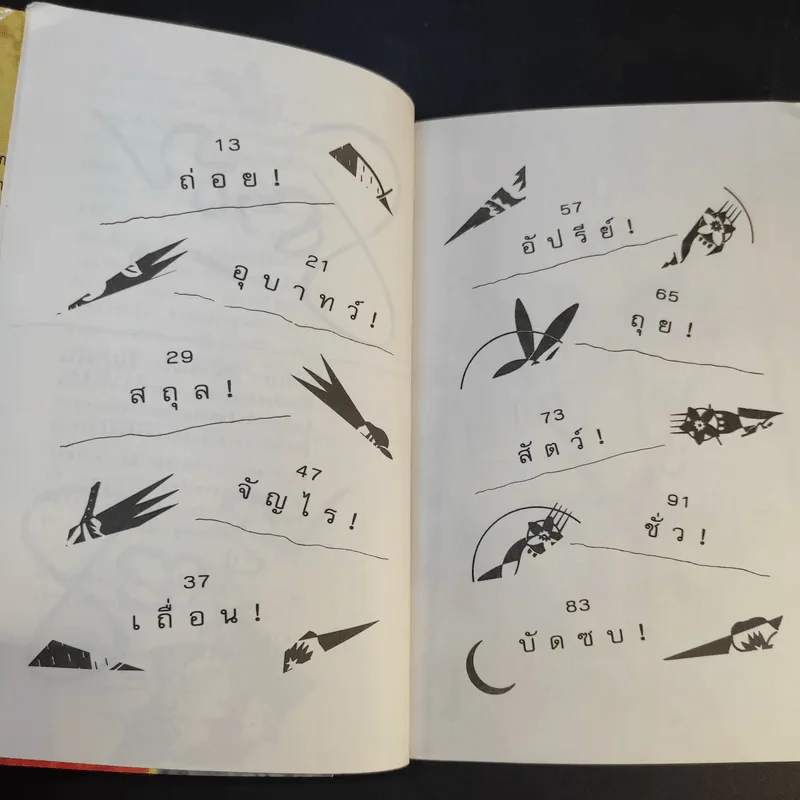 13
ถ่อย!
21
อุบาทว์!
29
สถุล!
47
จัญไร!
37
เถื่อน!
57
อัปรีย์!
65
ถุย!
73
สัตว์!
91
ชั่ว!
83
บัดซบ!